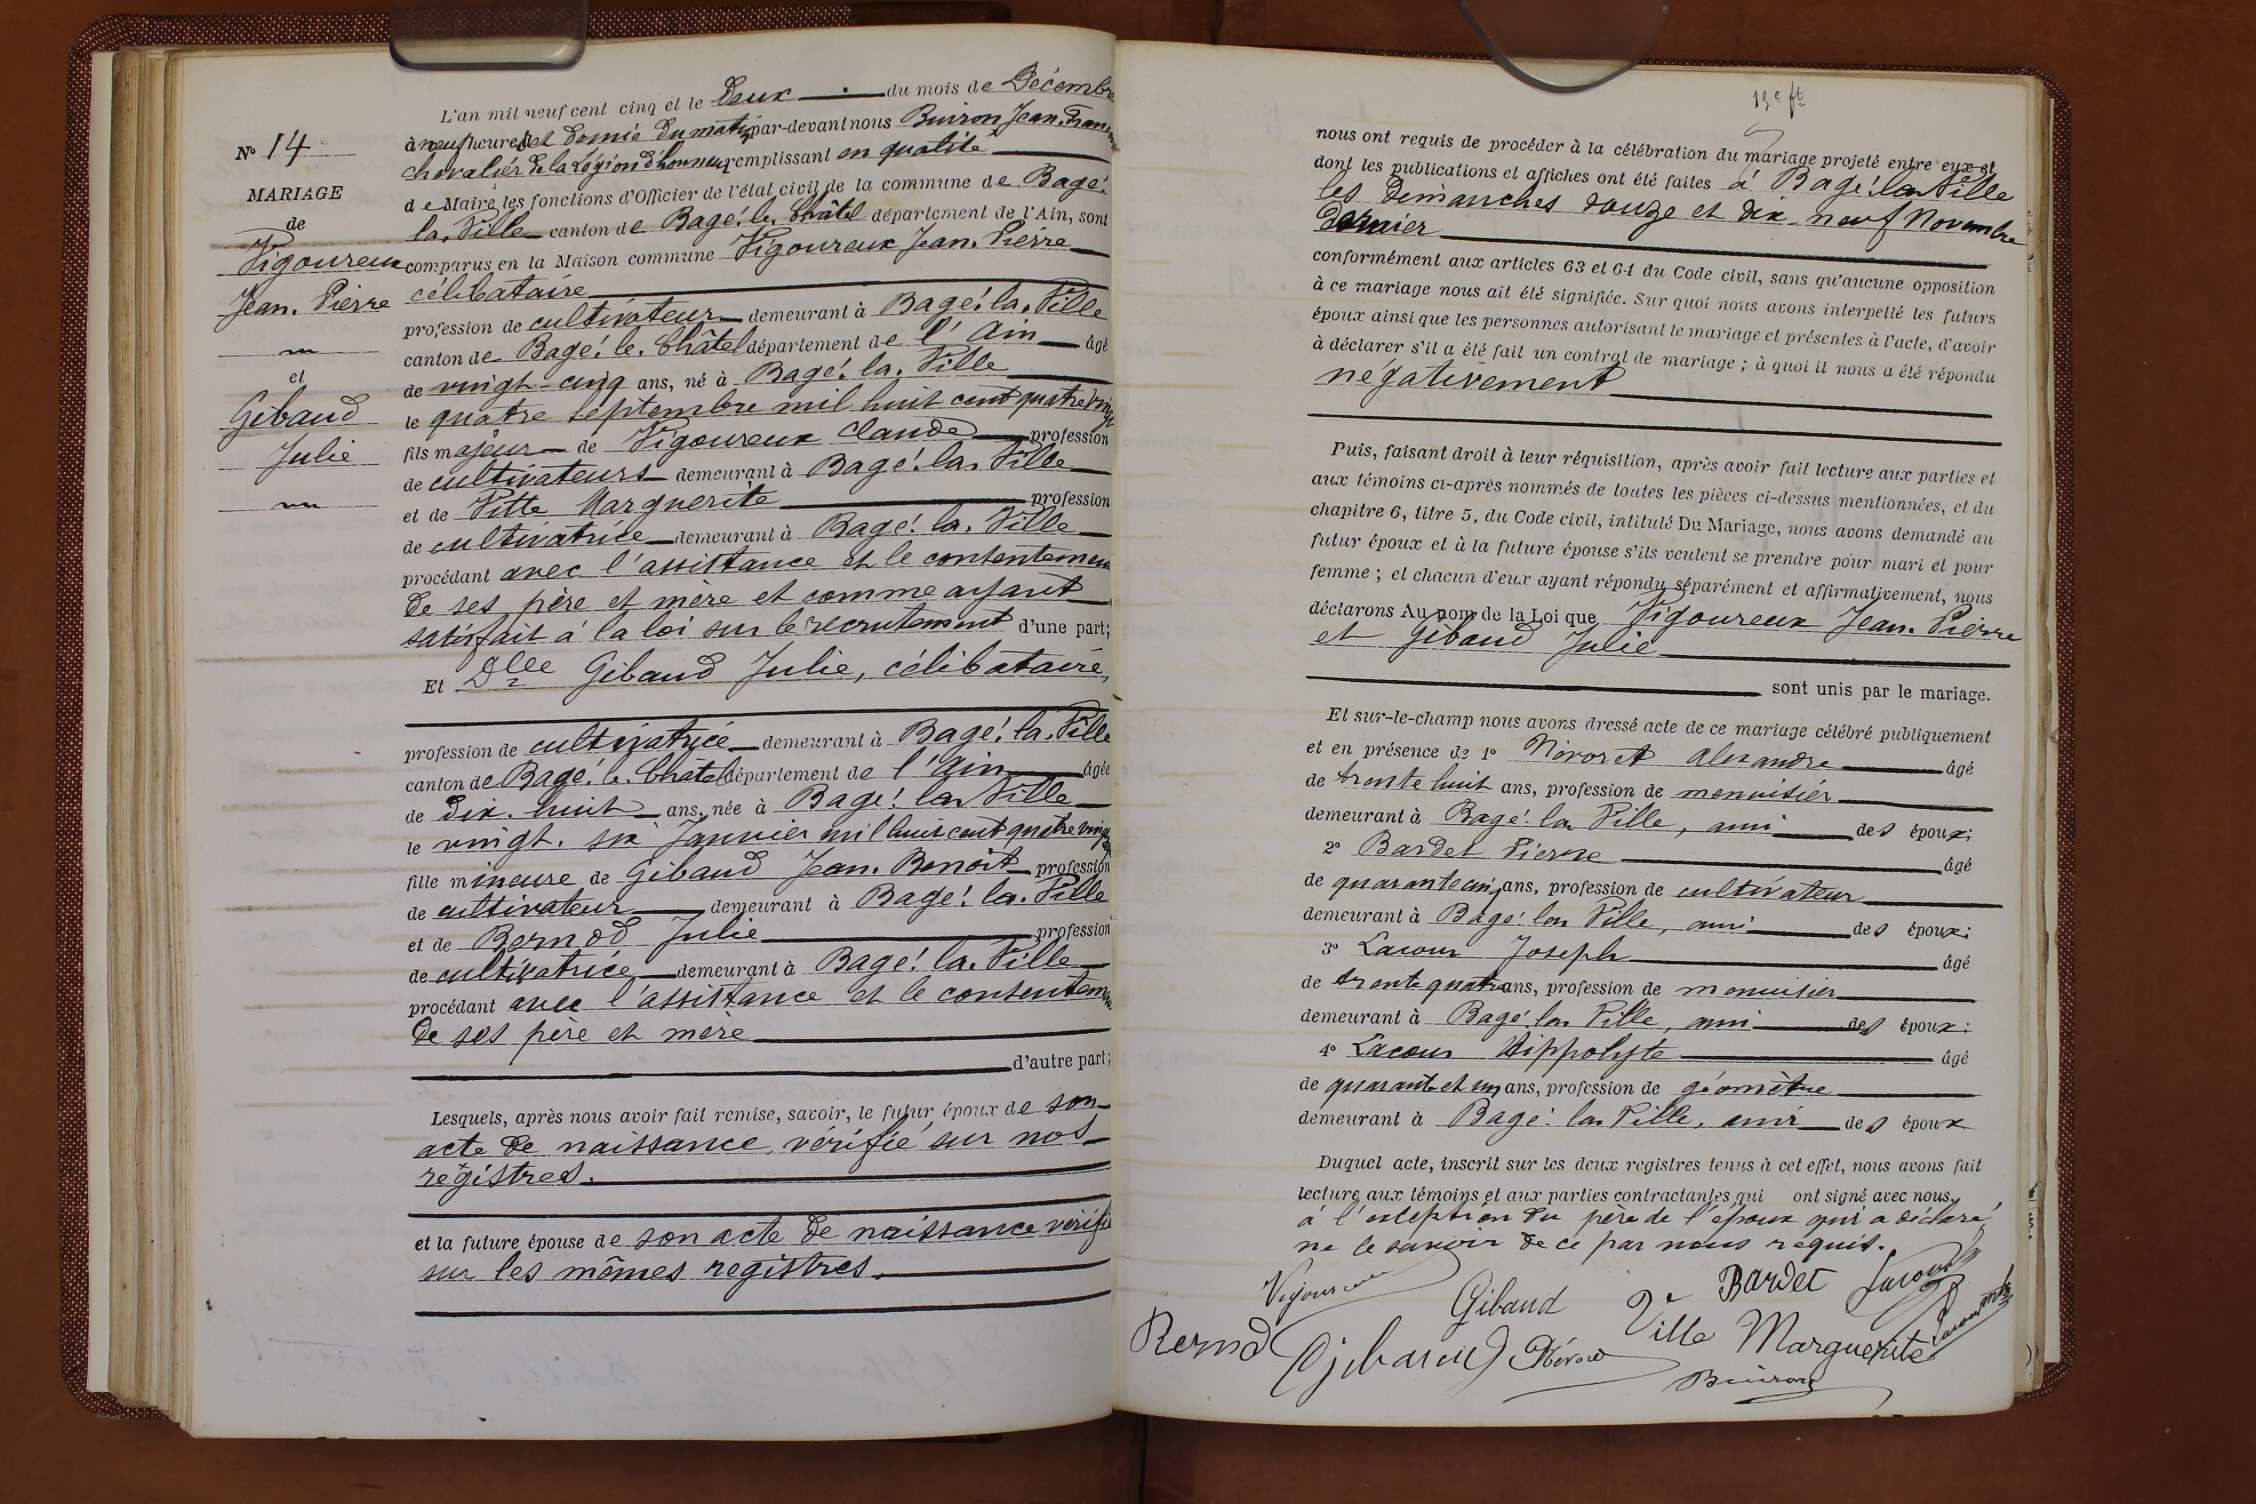 N° 14
MARIAGE
de
Vigoureux
Jean. Pierre
et
Gibaud
Julie
L'an mil neuf cent cinq et le deux du mois de Décembre
à neuf heures et demie du matin par-devant nous Buiron Jean. François
chevalier de la Légion d'honneur remplissant en qualité
de Maire les fonctions d'Officier de l'état civil de la commune de Bagé.
la. Ville canton de Bagé. le. Châtel département de l'Ain, sont
comparus en la Maison commune Vigoureux Jean. Pierre
célibataire
profession de cultivateur demeurant à Bagé. la. Ville
canton de Bagé. le. Châtel département de l'Ain âgé
de vingt-cinq ans, né à Bagé. la. Ville
le quatre septembre mil huit cent quatre vingt
fils majeur de Vigoureux Claude profession
de cultivateurs demeurant à Bagé. la. Ville
et de Vitte Marguerite profession
de cultivatrice demeurant à Bagé. la. Ville
procédant avec l'assistance et le consentement
de ses père et mère et comme ayant
satisfait à la loi sur le recrutement d'une part;
Et Dlle Gibaud Julie, célibataire,
profession de cultivatrice demeurant à Bagé. la. Ville
canton de Bagé. le. Châtel département de l'Ain âgée
de dix. huit ans, née à Bagé. la Ville
le vingt. six Janvier mil huit cent quatre vingt
fille mineure de Gibaud Jean. Benoît profession
de cultivateur demeurant à Bagé. la. Ville
et de Bernod Julie profession
de cultivatrice demeurant à Bagé. la. Ville
procédant avec l'assistance et le consentement
de ses père et mère
d'autre part;
Lesquels, après nous avoir fait remise, savoir, le futur époux de son
acte de naissance, vérifié sur nos
registres.
et la future épouse de son acte de naissance vérifié
sur les mêmes registres.
nous ont requis de procéder à la célébration du mariage projeté entre eux et
dont les publications et affiches ont été faites à Bagé. la Ville
les dimanches douze et dix-neuf Novembre
dernier
conformément aux articles 63 et 64 du Code civil, sans qu'aucune opposition
à ce mariage nous ait été signifiée. Sur quoi nous avons interpellé les futurs
époux ainsi que les personnes autorisant le mariage et présentes à l'acte, d'avoir
à déclarer s'il a été fait un contrat de mariage; à quoi il nous a été répondu
négativement
Puis, faisant droit à leur réquisition, après avoir fait lecture aux parties et
aux témoins ci-après nommés de toutes les pièces ci-dessus mentionnées, et du
chapitre 6, titre 5, du Code civil, intitulé Du Mariage, nous avons demandé au
futur époux et à la future épouse s'ils veulent se prendre pour mari et pour
femme; et chacun d'eux ayant répondu séparément et affirmativement, nous
déclarons Au nom de la Loi que Vigoureux Jean. Pierre
et Gibaud Julie
sont unis par le mariage.
Et sur-le-champ nous avons dressé acte de ce mariage célébré publiquement
et en présence de 1° Alexandre âgé
de trente huit ans, profession de menuisier
demeurant à Bagé. la Ville, ami des époux;
2° Bardet Pierre âgé
de quarante cinq ans, profession de cultivateur
demeurant à Bagé. la Ville, ami des époux;
3° Lacour Joseph âgé
de trente quatre ans, profession de menuisier
demeurant à Bagé. la Ville, ami des époux;
4° Lacour Hippolyte âgé
de quarante et un ans, profession de géomètre
demeurant à Bagé. la Ville, ami des époux
Duquel acte, inscrit sur les deux registres tenus à cet effet, nous avons fait
lecture aux témoins et aux parties contractantes qui ont signé avec nous,
à l'exception du père de l'époux qui a déclaré
ne le savoir de ce par nous requis.
Vigoureux Gibaud Bardet Lacour
Bernod Gibaud Vitte Marguerite
Buiron